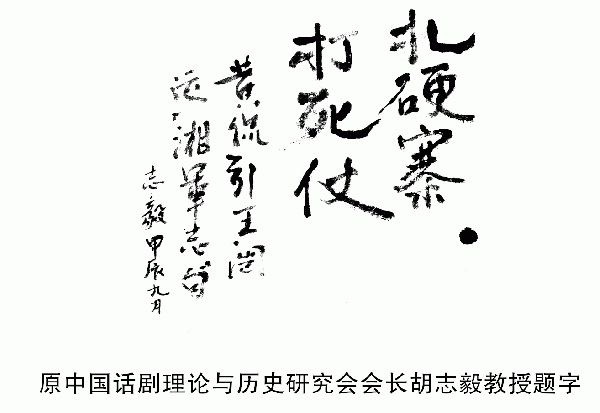 扎硬寨
打死仗
黄侃引王闿
运湘軍志
志毅甲辰九月
原中国话剧理论与历史研究会会长胡志毅教授题字